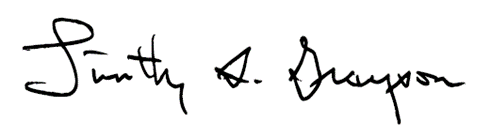 Timothy S. Grayson